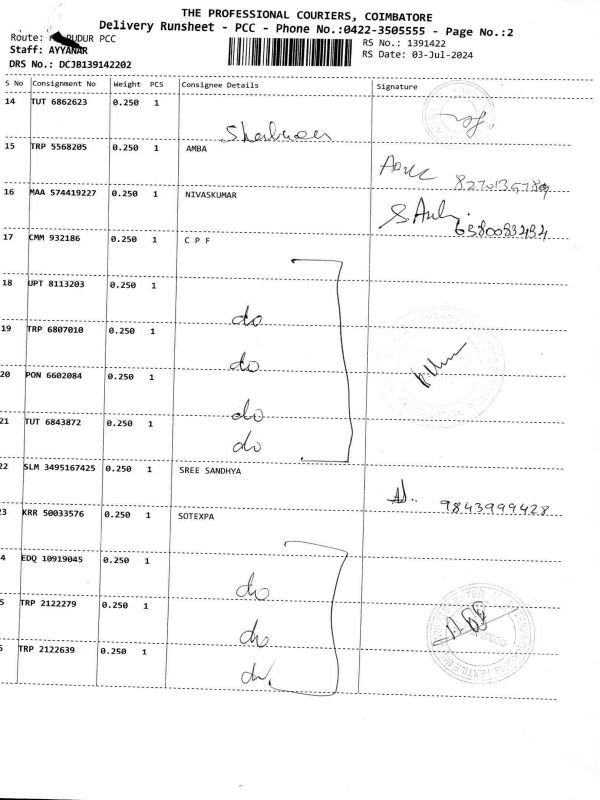 THE PROFESSIONAL COURIERS, COIMBATORE
Delivery Runsheet - PCC - Phone No.:0422-3505555 - Page No.:2
Route: PUDUR PCC
RS No.: 1391422
Staff: AYYANAR
RS Date: 03-Jul-2024
DRS No.: DCJB139142202
S No Consignment No Weight PCS Consignee Details Signature
14 TUT 6862623 0.250 1
15 TRP 5568205 0.250 1 AMBA
16 MAA 574419227 0.250 1 NIVASKUMAR
17 CMM 932186 0.250 1 C P F
18 UPT 8113203 0.250 1 do
19 TRP 6807010 0.250 1 do
20 PON 6602084 0.250 1 do
21 TUT 6843872 0.250 1 do
22 SLM 3495167425 0.250 1 SREE SANDHYA
9843999428
23 KRR 50033576 0.250 1 SOTEXPA
4 EDQ 10919045 0.250 1 do
5 TRP 2122279 0.250 1 do
TRP 2122639 0.250 1 do